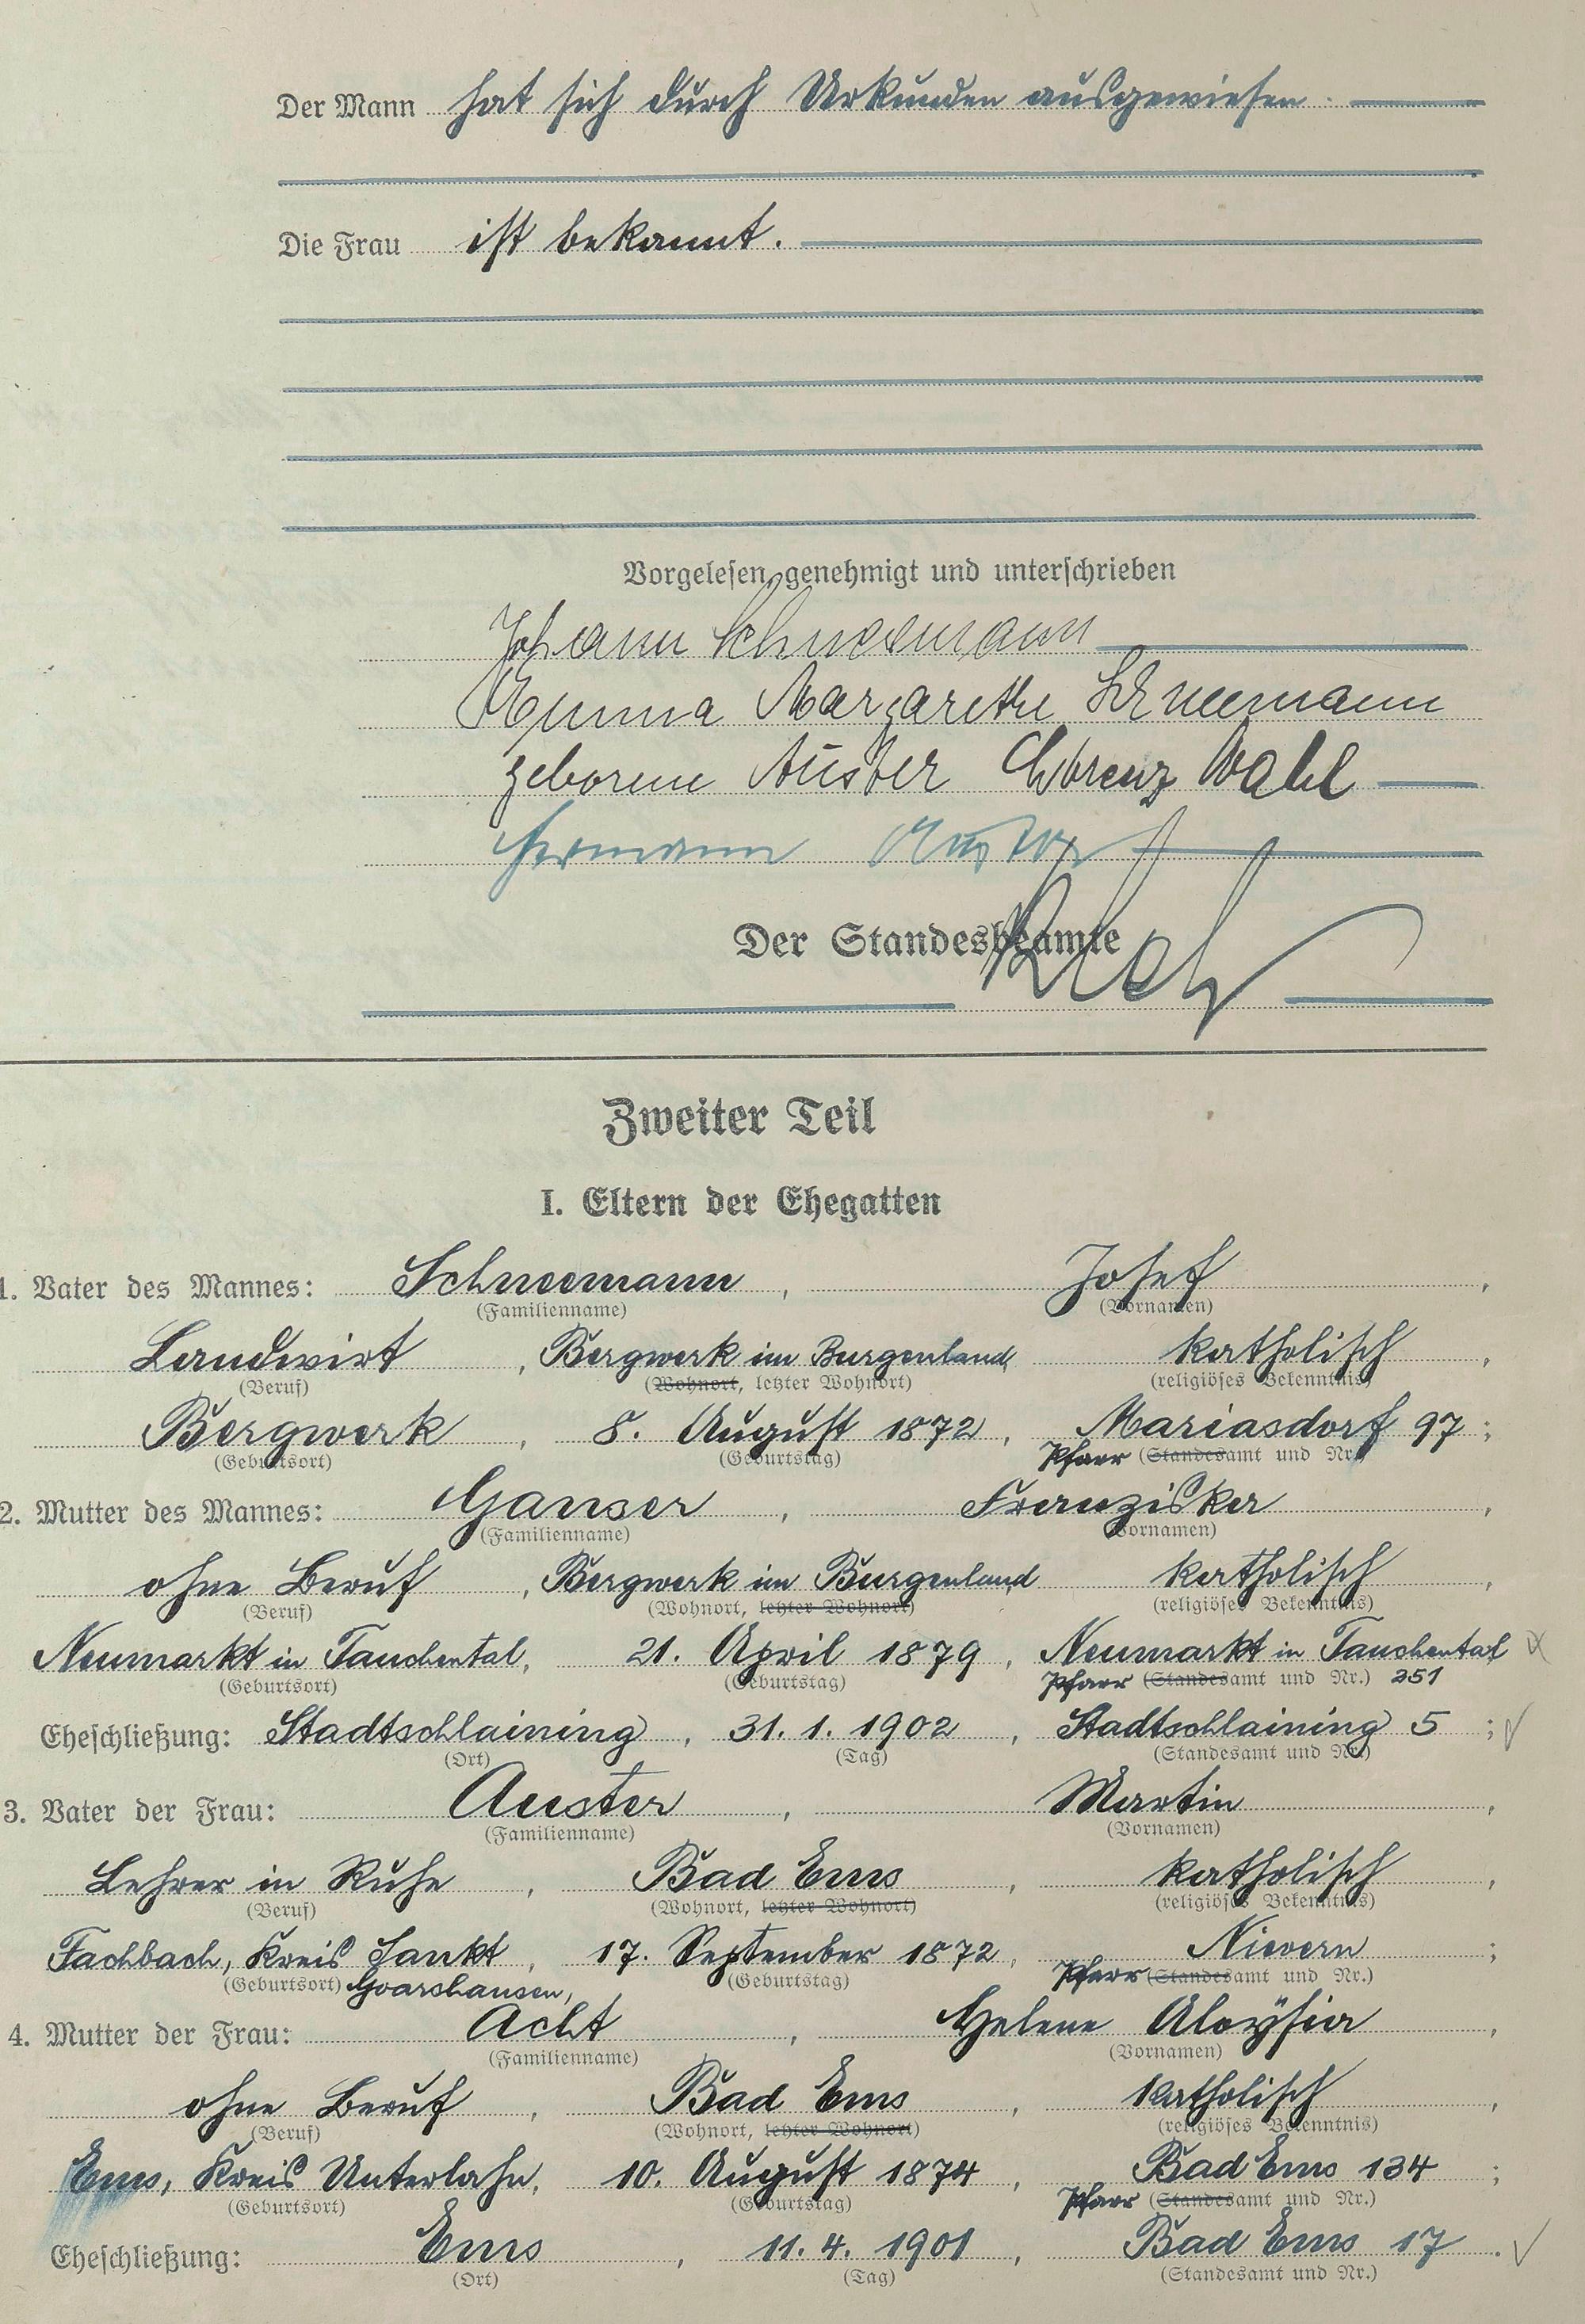 Der Mann hat sich durch Urkunden ausgewiesen.
Die Frau ist bekannt.
Vorgelesen, genehmigt und unterschrieben
Johann Schneemann
Emma Margarethe Schneemann
geborene Auster Lorenz Wahl
Hermann Auster
Der Standesbeamte
Zweiter Teil
I. Eltern der Ehegatten
1. Vater des Mannes: Schneemann, Josef,
(Familienname) (Vornamen)
Landwirt, Bergwerk im Burgenland, katholisch,
(Beruf) (Wohnort, letzter Wohnort) (religiöses Bekenntnis)
Bergwerk, 8. August 1872, Mariasdorf 97;
(Geburtsort) (Geburtstag) Pfarr (Standesamt und Nr.)
2. Mutter des Mannes: Ganser, Franziska,
(Familienname) (Vornamen)
ohne Beruf, Bergwerk im Burgenland katholisch,
(Beruf) (Wohnort, letzter Wohnort) (religiöses Bekenntnis)
Neumarkt in Tauchental, 21. April 1879, Neumarkt in Tauchental
(Geburtsort) (Geburtstag) Pfarr (Standesamt und Nr.) 251
Eheschließung: Stadtschlaining, 31. 1. 1902, Stadtschlaining 5;
(Ort) (Tag) (Standesamt und Nr.)
3. Vater der Frau: Auster, Martin,
(Familienname) (Vornamen)
Lehrer in Ruhe, Bad Ems, katholisch,
(Beruf) (Wohnort, letzter Wohnort) (religiöses Bekenntnis)
Fachbach, Kreis Sankt, 17. September 1872, Nievern;
(Geburtsort) Goarshausen, (Geburtstag) Pfarr (Standesamt und Nr.)
4. Mutter der Frau: Acht, Helene Aloysia,
(Familienname) (Vornamen)
ohne Beruf, Bad Ems, katholisch,
(Beruf) (Wohnort, letzter Wohnort) (religiöses Bekenntnis)
Ems, Kreis Unterlahn, 10. August 1874, Bad Ems 134;
(Geburtsort) (Geburtstag) Pfarr (Standesamt und Nr.)
Eheschließung: Ems, 11. 4. 1901, Bad Ems 17.
(Ort) (Tag) (Standesamt und Nr.)